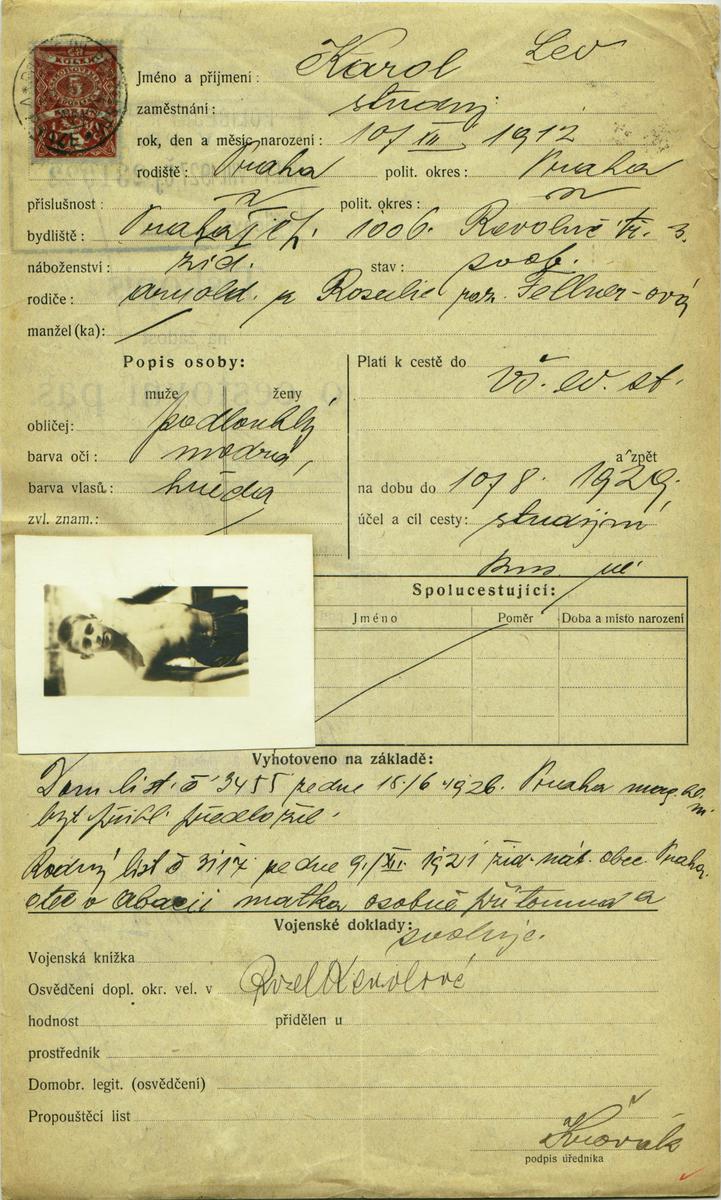 Jméno a příjmení: Karol Lev
zaměstnání: studuj
rok, den a měsíc narození: 10/ 1912
rodiště: Praha polit. okres: Praha
příslušnost: polit. okres:
bydliště: Praha 1006. Revoluč tř. 3.
náboženství: žid. stav: svob.
rodiče: Arnold. a Rosalie roz. Fellner-ová
manžel(ka):
Popis osoby:
muže ženy
obličej: podlouhlý
barva očí: modrá,
barva vlasů: hnědá
zvl. znam.:
Platí k cestě do vš. ev. st.
a zpět
na dobu do 10/8. 1929.
účel a cíl cesty: studijní
Spolucestující:
Jméno Poměr Doba a místo narození
Vyhotoveno na základě:
Dom. list. č 3455 ze dne 18/6 1926. Praha mag.
byt. přihl. předložil.
Rodný list č 3117 ze dne 9./XII. 1921 žid. nát. obec. Praha.
otec v Abacii matka osobně přítomna a
Vojenské doklady:
svoluje.
Vojenská knížka
Osvědčení dopl. okr. vel. v
hodnost přidělen u
prostředník
Domobr. legit. (osvědčení)
Propouštěcí list
podpis úředníka